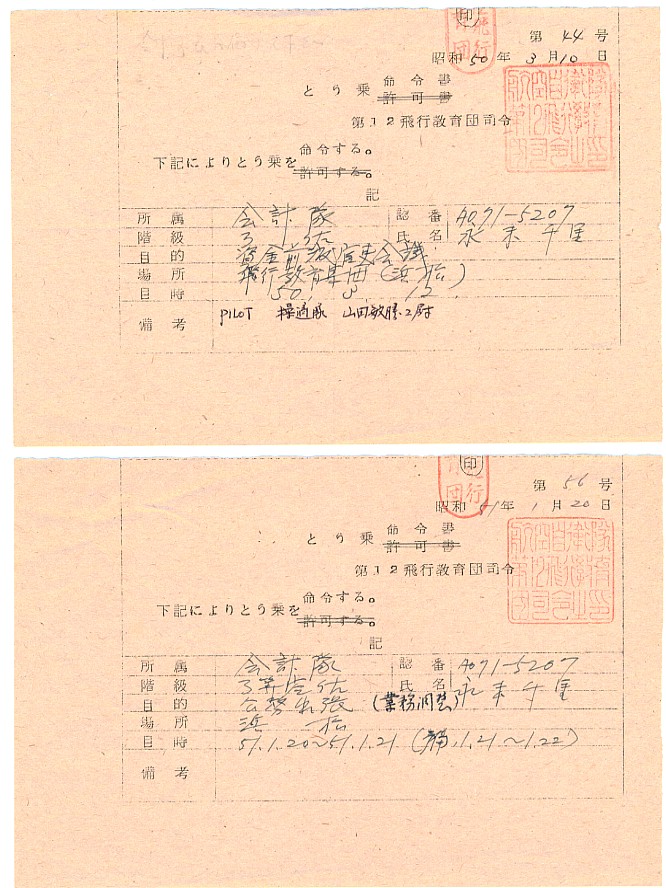 飛行
団
印
第 44 号
昭和 50 年 3 月 10 日
とう乗 命令書
許可書
第12飛行教育団司令
命令する。
下記によりとう乗を
許可する。
記
所属 会計隊 認番 A071-5207
階級 3 佐 氏名 永末千里
目的 資金前渡官吏会議
場所 飛行教育集団(浜松)
日時 50. 3. 12
備考 PILOT 操通隊 山田敏勝2尉
行
団
印
第 56 号
昭和 51 年 1 月 20 日
とう乗 命令書
許可書
第12飛行教育団司令
命令する。
下記によりとう乗を
許可する。
記
所属 会計隊 認番 A071-5207
階級 3等空佐 氏名 永末千里
目的 公務出張 (業務調整)
場所 浜松
日時 51.1.20～51.1.21 (1.21～1.22)
備考